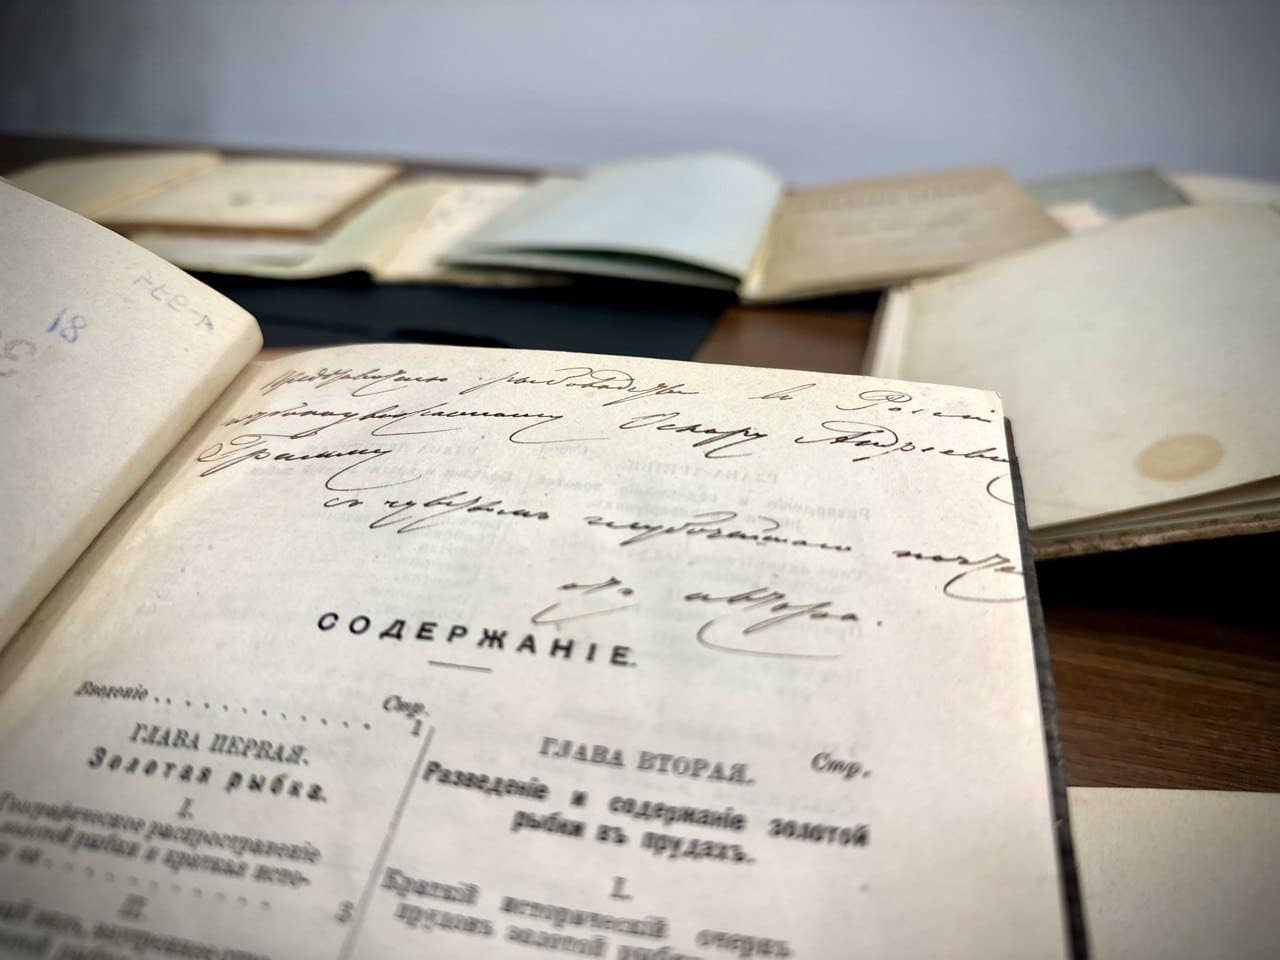 18
рыбоводства в Россіи
глубокоуважаемому Оскару Андреевичу
Гримму
съ чувствомъ глубочайшаго
отъ автора.
СОДЕРЖАНІЕ.
Введеніе . . . . . . . . . . . . 1
Стр.
ГЛАВА ПЕРВАЯ.
Золотая рыбка.
I.
Географическое распространеніе
золотой рыбки и краткая исто-
3
II.
ГЛАВА ВТОРАЯ.
Стр.
Разведеніе и содержаніе золотой
рыбки въ прудахъ.
I.
Краткій историческій очеркъ
прудовъ золотой рыбки